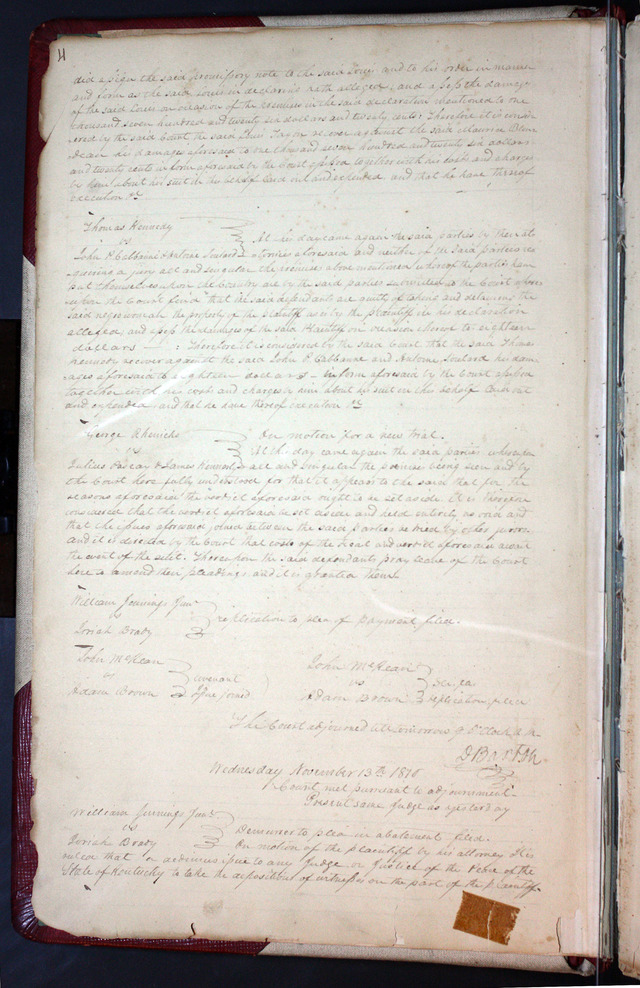 did assign the said promissory note to the said Louis and to his order in manner
and form as the said Louis in declaring hath alleged, and assess the damage
of the said Louis on occasion of the premises in the said declaration mentioned to one
thousand seven hundred and twenty six dollars and twenty cents: Therefore it is consid
ered by the said Court the said Louis recover against the said Maurice
his damages aforesaid to one thousand seven hundred and twenty six dollars
and twenty cents in form aforesaid by the Court assessed together with his costs and charges
by him about his suit in this behalf laid out and expended, and that he have thereof
execution &c
Thomas Kennedy
vs At this day came again the said parties by their at
John P. Cabbanne & Antoine Soulard torneys aforesaid and neither of the said parties re
quiring a jury all and singular the premises above mentioned whereof the parties have
put themselves upon the Country are by the said parties submitted to the Court where
upon the Court find that the said defendants are guilty of taking and detaining the
said negro woman the property of the plaintiff as by the plaintiff in his declaration
alleged, and assess the damages of the said Plaintiff on occasion thereof to eighteen
dollars : Therefore it is considered by the said Court that the said Thomas
Kennedy recover against the said John P. Cabbanne and Antoine Soulard his dam
ages aforesaid to eighteen dollars in form aforesaid by the Court assessed
together with his costs and charges by him about his suit in this behalf laid out
and expended and that he have thereof execution &c
George vs On motion for a new trial.
At this day came again the said parties whereupon
Julius & James Kennerly all and singular the premises being seen and by
the Court here fully understood for that it appears to the said that for the
reasons aforesaid the verdict aforesaid ought to be set aside. It is therefore
considered that the verdict aforesaid be set aside and held entirely as void and
that the issues aforesaid joined between the said Parties be tried by other jurors.
and it is directed by the Court that costs of the trial and verdict aforesaid await
the event of the suit. Thereupon the said defendants pray leave of the Court
here to amend their pleadings and it is granted them
William Jennings Junr
vs replication to plea of payment filed.
Josiah Brady
John McKean John McKean
vs covenant vs
Adam Brown Issue joined Adam Brown replication filed
The Court adjourned till tomorrow 9 O'clock A.M.
Wednesday November 13th
Court met pursuant to adjournment
Present same Judge as yesterday
William Jennings Junr
vs Demurrer to plea in abatement filed.
Josiah Brady On motion of the plaintiff by his attorney It is
ordered that a dedimus issue to any Judge or Justice of the Peace of the
State of Kentucky to take the deposition of witnesses on the part of the plaintiff